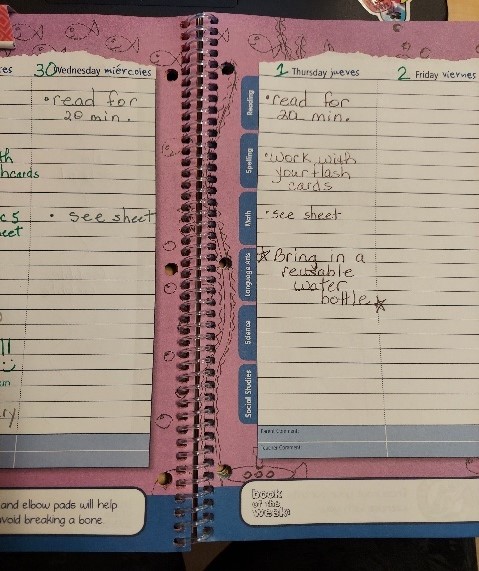 es
30 Wednesday miércoles
• read for
20 min.
th
hcards
c 5
eet
• see sheet
!!
kin
ry
and elbow pads will help
void breaking a bone
1 Thursday jueves
2 Friday viernes
Reading
• read for
20 min.
Spelling
• work with
your flash
cards
Math
• see sheet
Language Arts
☆ Bring in a
reusable
water
bottle ☆
Science
Social Studies
Parent Comment:
Teacher Comment:
book
of the
week: